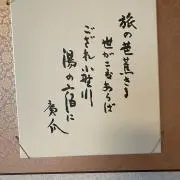 旅の芭蕉さる
世がこむあらば
ござれ小野川
湯の宿に